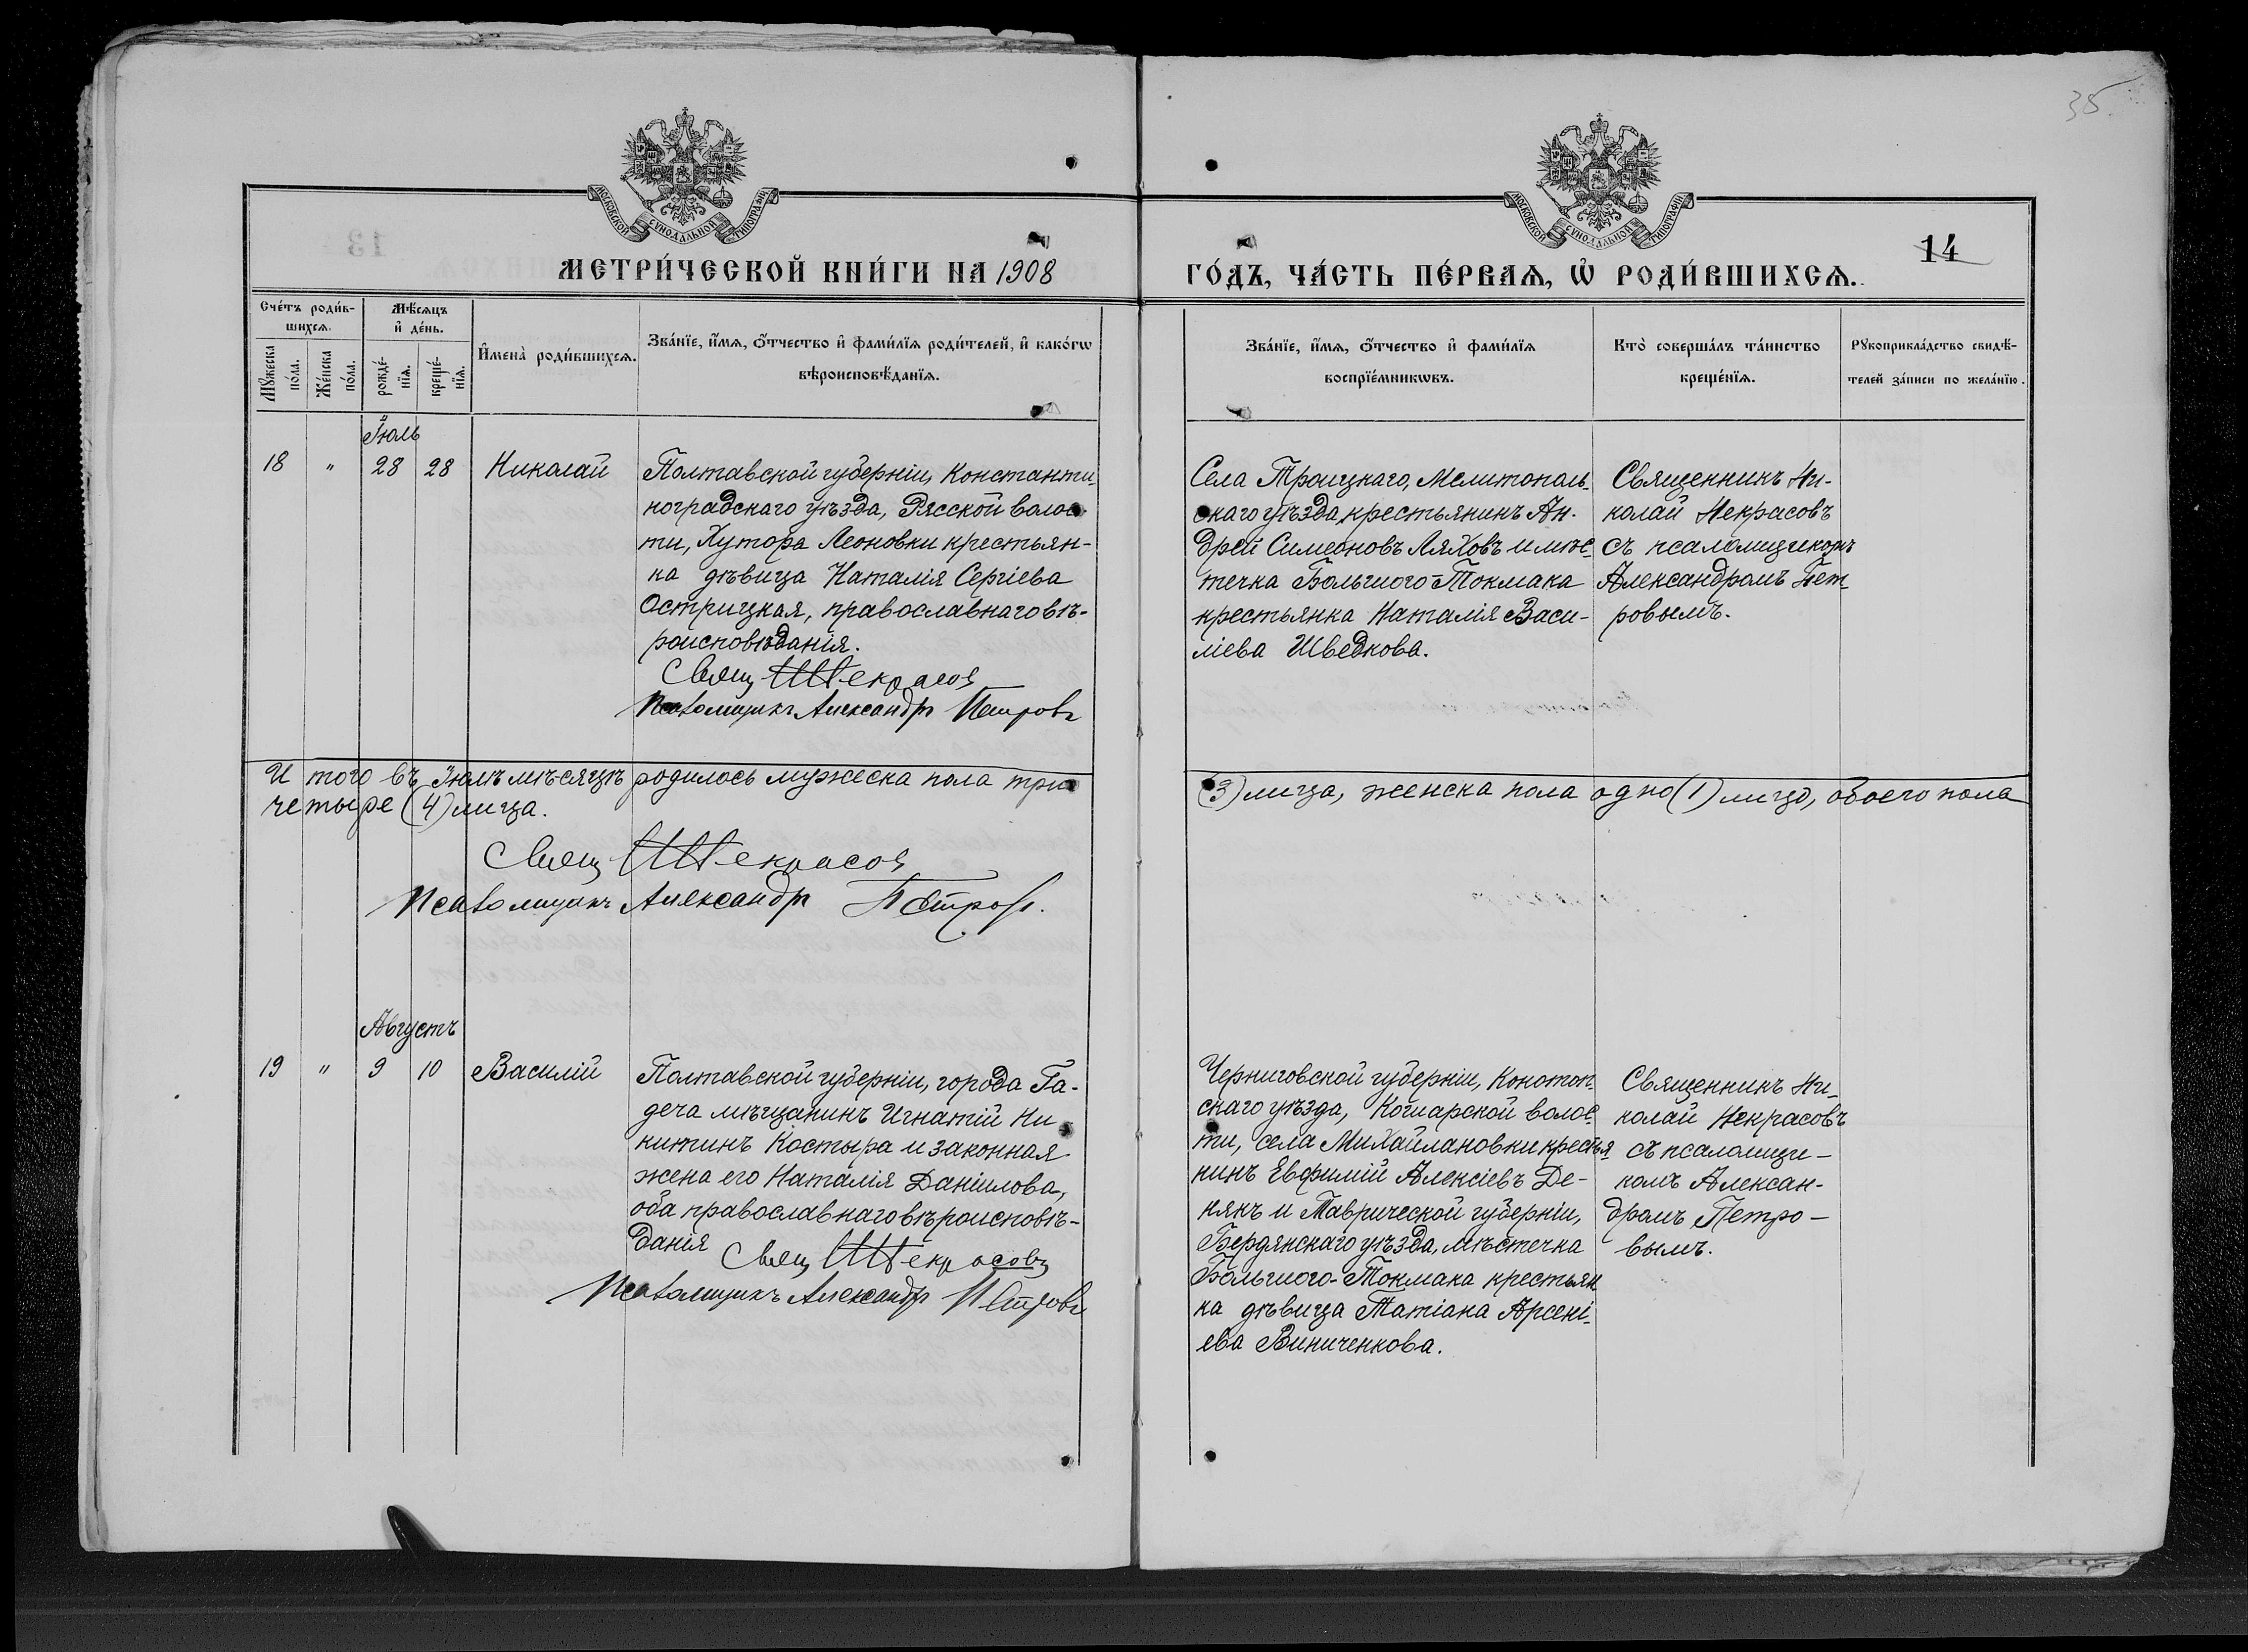 35
МОСКОВСКОЙ СУНОДАЛЬНОЙ ТИПОГРАФІИ
МОСКОВСКОЙ СУНОДАЛЬНОЙ ТИПОГРАФІИ
14
МЕТРИ́ЧЕСКОЙ КНИ́ГИ НА 1908
ГО́ДЪ, ЧА́СТЬ ПЕ́РВАѦ, Ѡ҆ РОДИ́ВШИХСѦ.
Сче́тъ роди́в-
шихсѧ.
Мѣ́сѧцъ
и҆ де́нь.
Мꙋ́жеска
по́ла.
Же́нска
по́ла.
рожде́-
нїѧ.
креще́-
нїѧ.
И҆мена̀ роди́вшихсѧ.
Зва́нїе, и҆́мѧ, ѻ҆́тчество и҆ фами́лїѧ роди́телей, и҆ како́гѡ
вѣроисповѣ́данїѧ.
Зва́нїе, и҆́мѧ, ѻ҆́тчество и҆ фами́лїѧ
воспрїе́мникѡвъ.
Кто̀ соверша́лъ та́инство
креще́нїѧ.
Рꙋкоприкла́дство свидѣ́-
телей за́писи по жела́нїю.
Іюль
18 " 28 28 Николай
Полтавской губерніи, Константи-
ноградскаго уѣзда, Рясской волос-
ти, Хутора Леоновки крестьян-
ка дѣвица Наталія Сергіева
Острицкая, православнаго вѣ-
роисповѣданія.
Свящ Н Некрасовъ
Псаломщикъ Александръ Петровъ
Села Троицкаго, Мелитополь-
скаго уѣзда, крестьянинъ Ан-
дрей Симеоновъ Ляховъ и мѣс-
течка Большого-Токмака
крестьянка Наталія Васи-
ліева Шведкова.
Священникъ Ни-
колай Некрасовъ
съ псаломщикомъ
Александромъ Пет-
ровымъ.
И того въ Іюлѣ мѣсяцѣ родилось мужеска пола три (3) лица, женска пола одно (1) лицо, обоего пола
четыре (4) лица.
Свящ Н Некрасовъ
Псаломщикъ Александръ Петровъ.
Августъ
19 " 9 10 Василій
Полтавской губерніи, города Га-
деча мѣщанинъ Игнатій Ни-
китинъ Костыра и законная
жена его Наталія Даніилова,
оба православнаго вѣроисповѣ-
данія
Свящ Н Некрасовъ
Псаломщикъ Александръ Петровъ
Черниговской губерніи, Конотоп-
скаго уѣзда, Кошарской волос-
ти, села Михайлановки крестья
нинъ Евфимій Алексіевъ Де-
някъ и Таврической губерніи,
Бердянскаго уѣзда, мѣстечка
Большого-Токмака крестьян
ка дѣвица Татіана Арсені-
ева Виниченкова.
Священникъ Ни-
колай Некрасовъ
съ псаломщи-
комъ Алексан-
дромъ Петро-
вымъ.